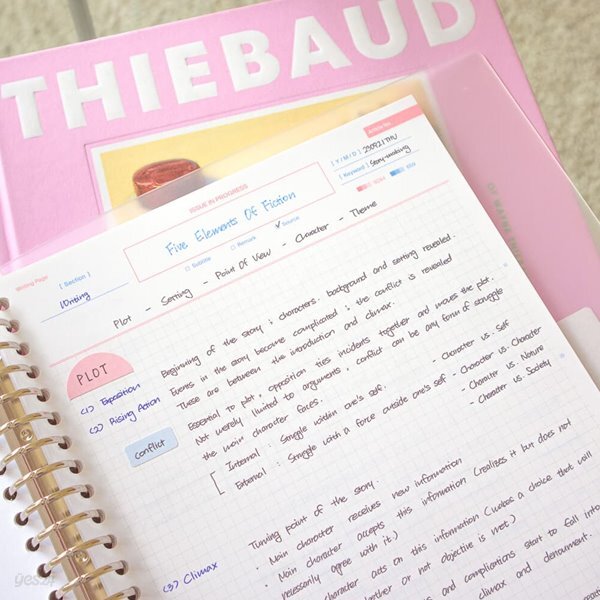 THIEBAUD
ISSUE IN PROGRESS
Five Elements Of Fiction
□ Subtitle □ Remark ☑ Source
[ Y / M / D ] 250921 THU
[ Keyword ] Story-making
Writing Page
[ Section ]
Writing
Plot - Setting - Point Of View - Character - Theme
PLOT
(1) Exposition
Beginning of the story ; characters, background and setting revealed.
(2) Rising Action
Events in the story become complicated ; the conflict is revealed
These are between the introduction and climax.
Conflict
Essential to plot, opposition ties incidents together and moves the plot.
Not merely limited to arguments, conflict can be any form of struggle
the main character faces.
Internal : Struggle within one's self.
External : Struggle with a force outside one's self
- Character vs. Self
- Character vs. Character
- Character vs. Nature
- Character vs. Society
(3) Climax
Turning point of the story.
· Main character receives new information
· Main character accepts this information (realizes it but does not
necessarily agree with it.)
character acts on this information (Makes a choice that will
whether or not objective is met.)
and complications start to fall into
climax and denoument.
yes24